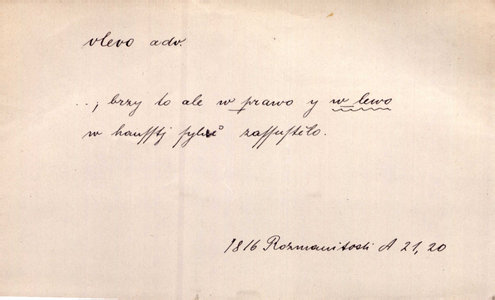 vlevo adv.
..., brzy to ale w prawo y w lewo
w haufftj sylně zaffuftilo.
1816 Rozmanitosti A 21, 20